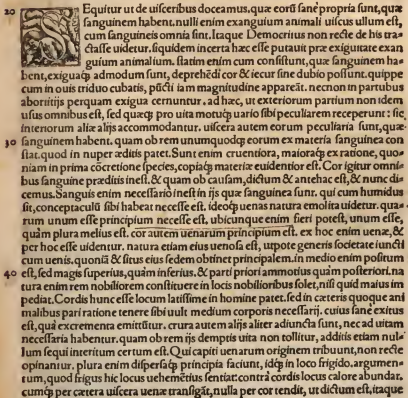 20 SEquitur ut de uiscerib us doceamus, quæ eorũ sanè propria sunt, quæ
sanguinem habent. nulli enim exanguium animali uiscus ullum est,
cum sanguineis omnia sint. Itaque Democritus non recte de his tra=
ctasse uidetur. siquidem incerta hæc esse putauit præ exiguitate exan
guium animalium. statim enim cum consistunt, quæ sanguinem ha=
bent, exiguaq; admodum sunt, deprehẽdi cor & iecur sine dubio possunt. quippe
cum in ouis triduo cubatis, pũcti iam magnitudine appareãt. necnon in partubus
abortitijs perquam exigua cernuntur. ad hæc, ut exteriorum partium non idem
usus omnibus est, sed quæq; pro uita motuq; uario sibi peculiarem receperunt: sic
interiorum aliæ alijs accommodantur. uiscera autem eorum peculiaria sunt, quæ
30 sanguinem habent. quam ob rem unumquodq; eorum ex materia sanguinea con
stat. quod in nuper æditis patet. Sunt enim cruentiora, maioraq; ex ratione, quo=
niam in prima cõcretione species, copiaq; materiæ euidentior est. Cor igitur omni=
bus sanguine præditis inest. & quam ob causam, dictum & antehac est, & nunc di=
cemus. Sanguis enim necessario inest in ijs quæ sanguinea sunt. qui cum humidus
sit, conceptaculũ sibi habeat necesse est. ideoq; uenas natura emolita uidetur. qua=
rum unum esse principium necesse est. ubicunque enim fieri potest, unum esse,
quàm plura melius est. cor autem uenarum principium est. ex hoc enim uenæ, &
per hoc esse uidentur. natura etiam eius uenosa est, utpote generis societate iuncti
cum uenis. quoniã & situs eius sedem obtinet principalem. in medio enim positum
40 est, sed magis superius, quàm inferius. & parti priori ammotius quàm posteriori. na
tura enim rem nobiliorem constituere in locis nobilioribus solet, nisi quid maius im
pediat. Cordis hunc esse locum latissime in homine patet. sed in cæteris quoque ani
malibus pari ratione tenere sibi uult medium corporis necessarij. cuius sanè exitus
est, quà excrementa emittũtur. crura autem alijs aliter adiuncta sunt, nec ad uitam
necessaria habentur. quam ob rem ijs demptis uita non tollitur, additis etiam nul=
lum sequi interitum certum est. Qui capiti uenarum originem tribuunt, non recte
opinantur. plura enim dispersaq; principia faciunt, idq; in loco frigido. argumen=
tum, quod frigus hic locus uehemẽtius sentiat: contrà cordis locus calore abundat.
cumq; per cætera uiscera uenæ transigãt, nulla per cor tendit, ut dictum est, itaque